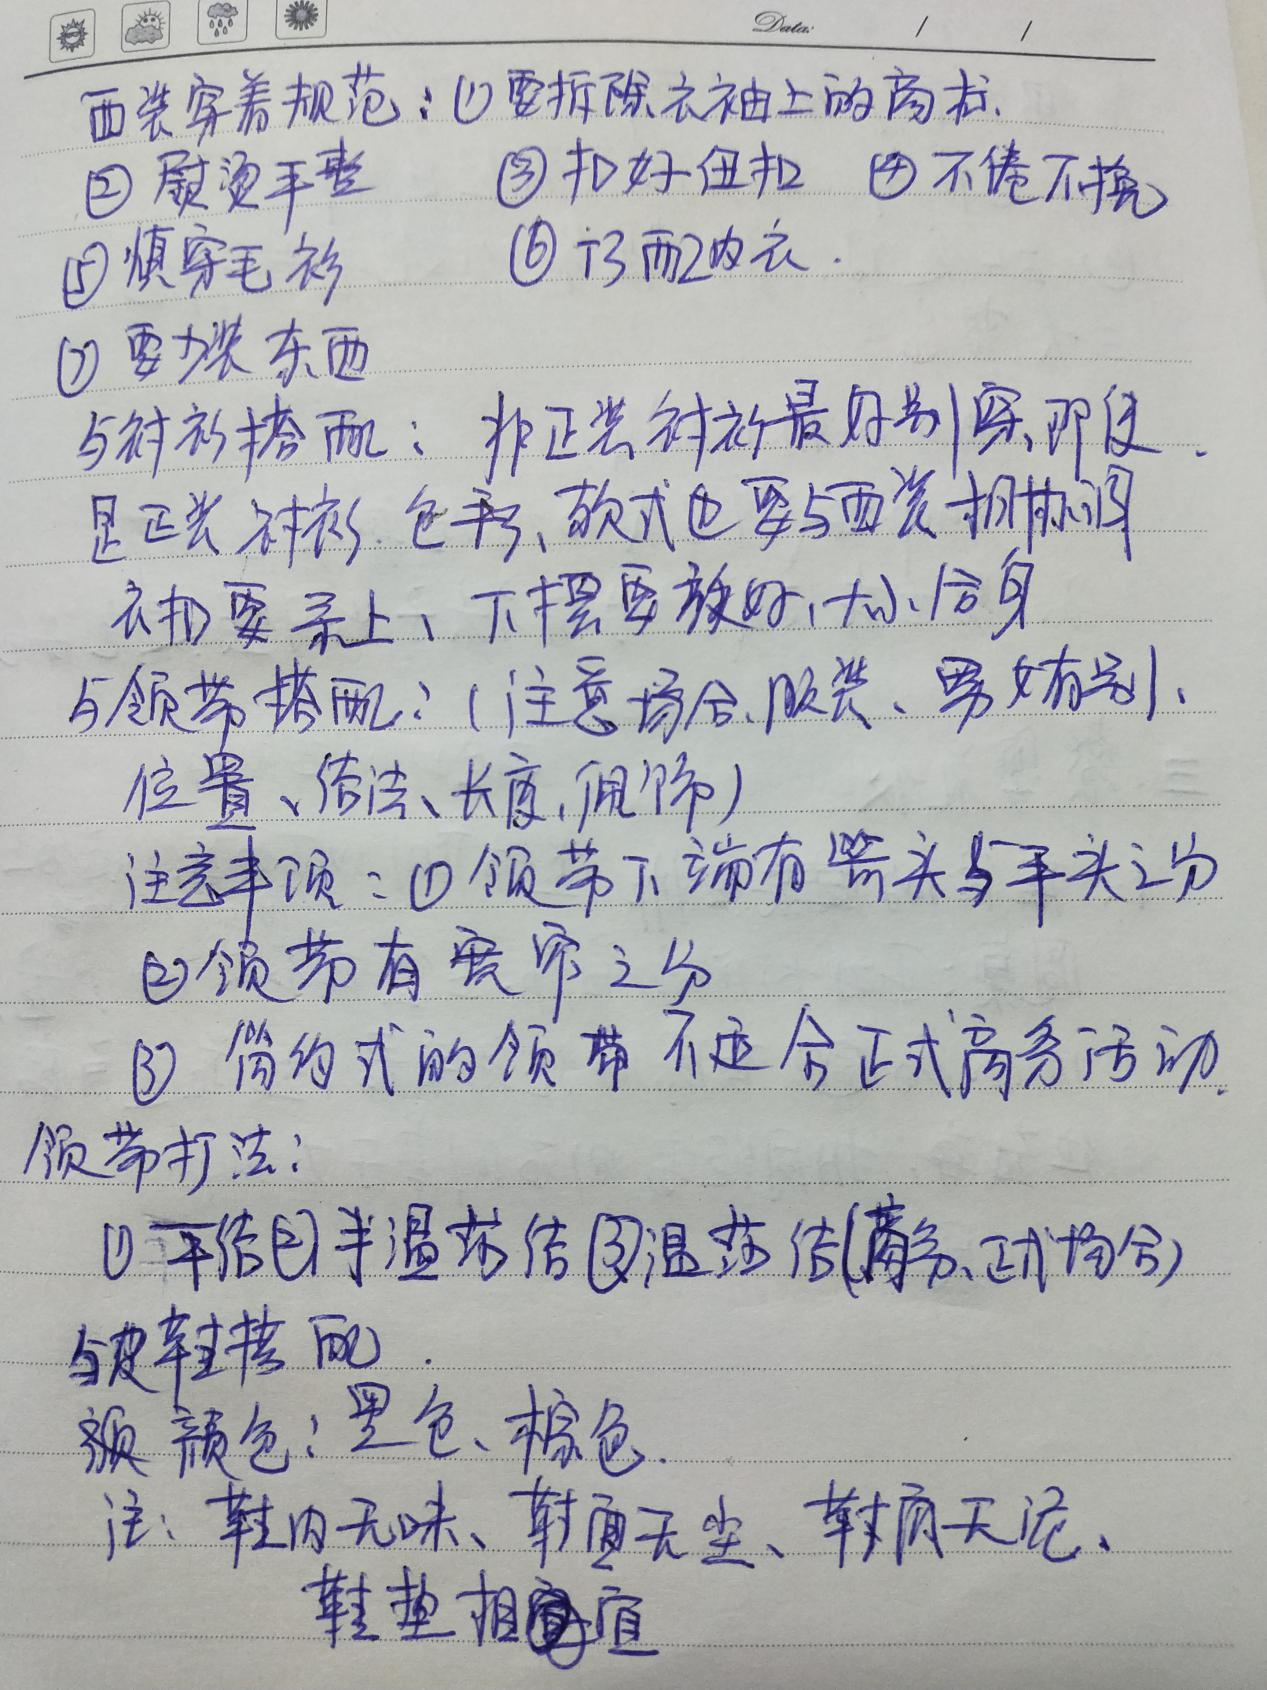 Data: / /
西装穿着规范:①要拆除衣袖上的商标.
②熨烫平整 ③扣好纽扣 ④不倦不挽
⑤慎穿毛衫 ⑥巧配内衣.
⑦要少装东西
与衬衫搭配:非正装衬衫最好别穿,即使.
是正装衬衫.色彩、款式也要与西装相协调
衣扣要系上、下摆要放好、大小合身
与领带搭配:(注意场合、服装、男女有别、
位置、结法、长度、佩饰)
注意事项:①领带下端有箭头与平头之分
②领带有宽窄之分
③简约式的领带不适合正式商务活动.
领带打法:
①平结②半温莎结③温莎结(商务、正式场合)
与皮鞋搭配.
颜颜色:黑色、棕色.
注:鞋内无味、鞋面无尘、鞋底无泥、
鞋垫相宜